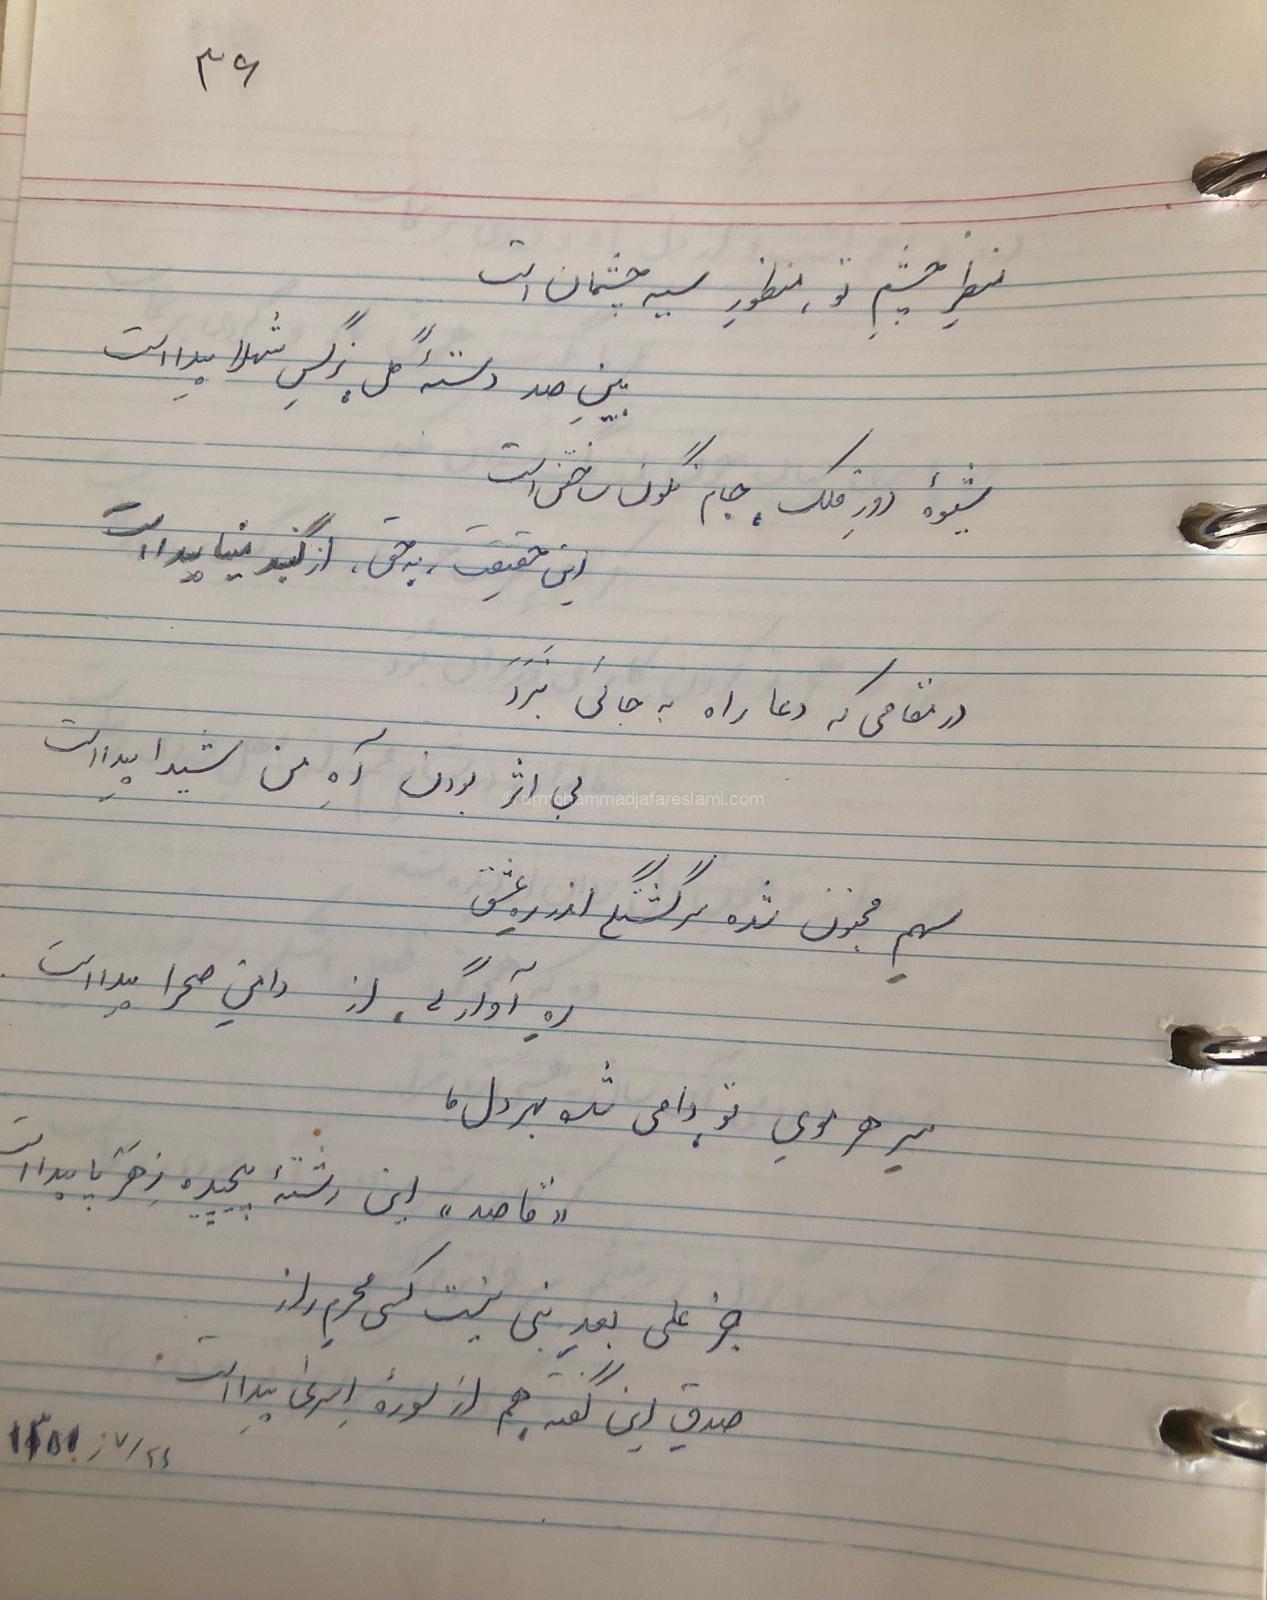 ۳۶
منظرِ چشمِ تو، منظورِ سیه چشمان است
بینِ صد دستهٔ گل، نرگسِ شهلا پیدا است
شیوهٔ دورِ فلک، جام نگون ساختن است
این حقیقت، به حق، از گنبد مینا پیدا است
در مقامی که دعا راه به جائی نَبَرَد
بی اثر بودن آهِ من شیدا پیدا است
سهمِ مجنون شده سرگشتگی اندر رهِ عشق
رهِ آوارگی، از دامنِ صحرا پیدا است
سرِ هر موی تو، دامی شده بهر دل ما
«قاصد»، این رشتهٔ پیچیده زِ هر تا پیدا است
جز علی بعدِ نبی نیست کسی محرمِ راز
صدقِ این گفته هم از سورهٔ اِسریٰ پیدا است
© drmohammadjafareslami.com